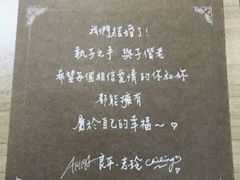 我們結婚了！
執子之手 與子偕老
希望每個相信愛情的你和妳
都能擁有
屬於自己的幸福～♡
AKIRA 良平．志玲 chiling